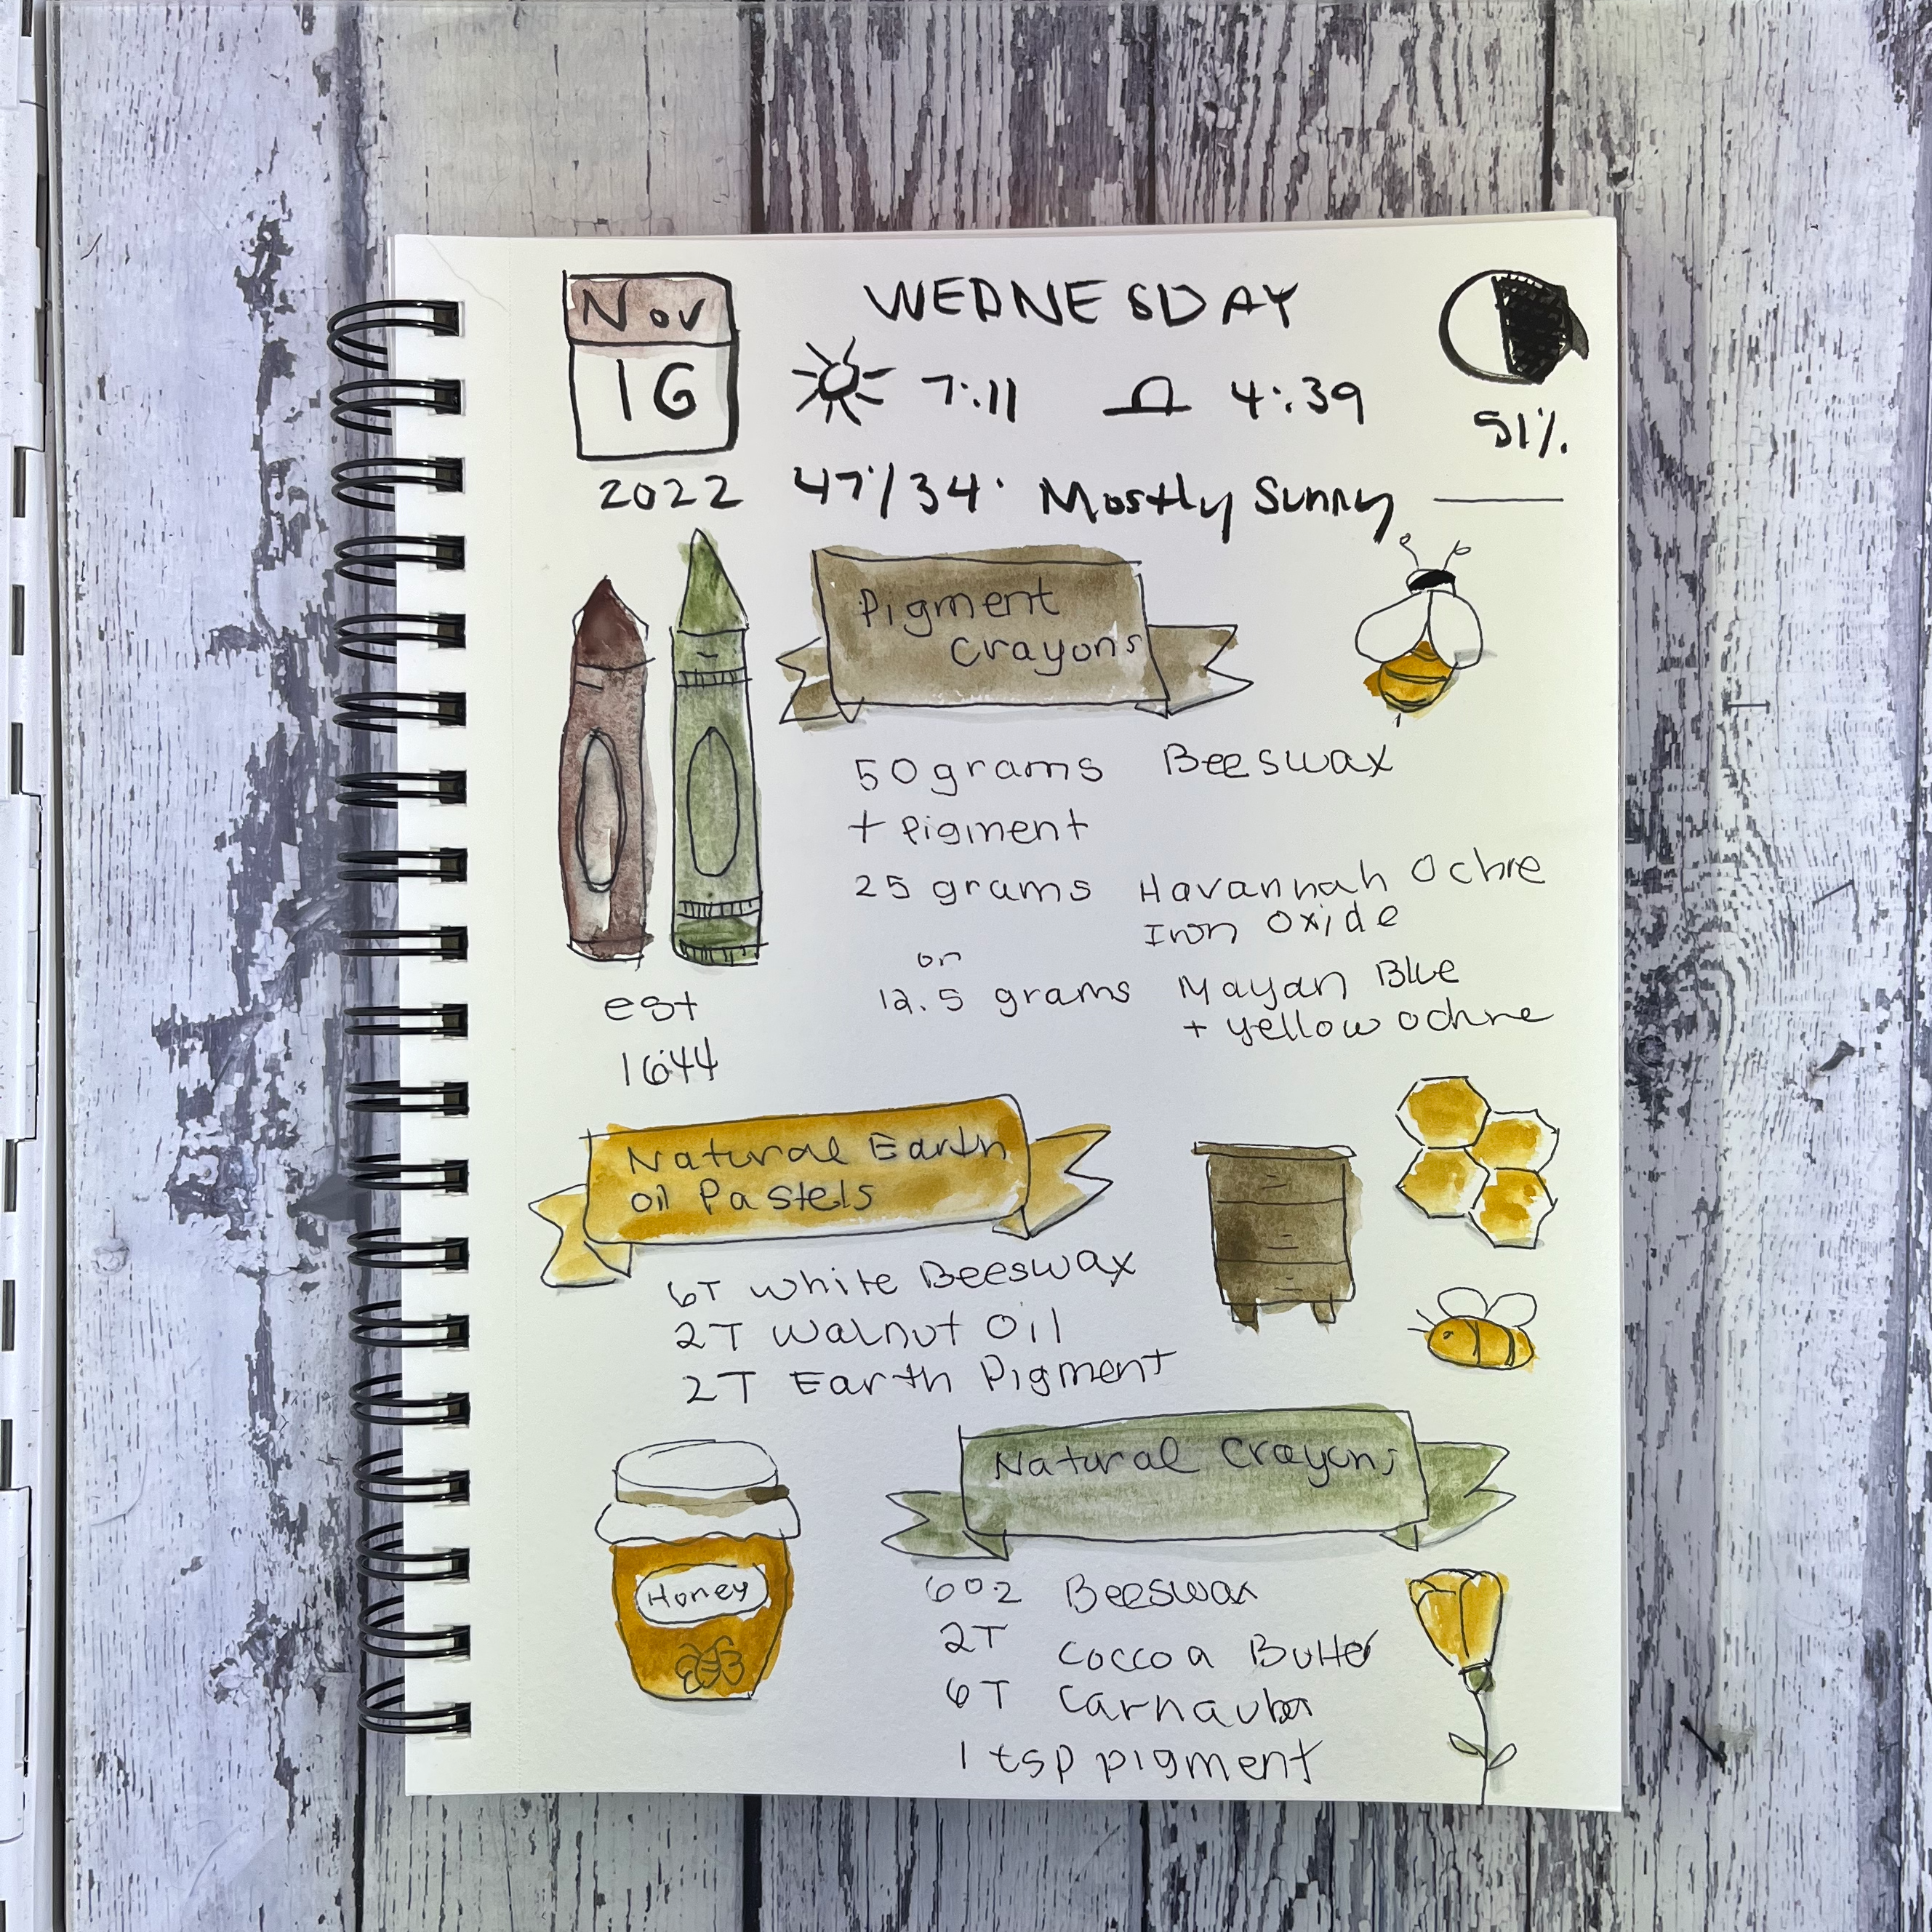 Nov
16
2022
WEDNESDAY
7:11 4:39
51%
47°/34° Mostly Sunny
Pigment
Crayons
50 grams Beeswax
+ Pigment
25 grams Havannah Ochre
Iron Oxide
or
12.5 grams Mayan Blue
+ yellow ochre
est
1644
Natural Earth
Oil Pastels
6T White Beeswax
2T Walnut Oil
2T Earth Pigment
Honey
Natural Crayons
6oz Beeswax
2T Coccoa Butter
6T Carnauba
1 tsp pigment